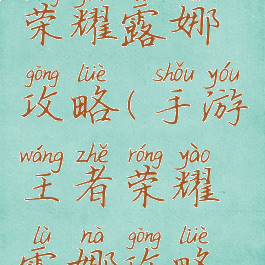 荣耀露娜
gōng lüè shǒu yóu
攻略(手游
wáng zhě róng yào
王者荣耀
lù nà gōng lüè
露娜攻略